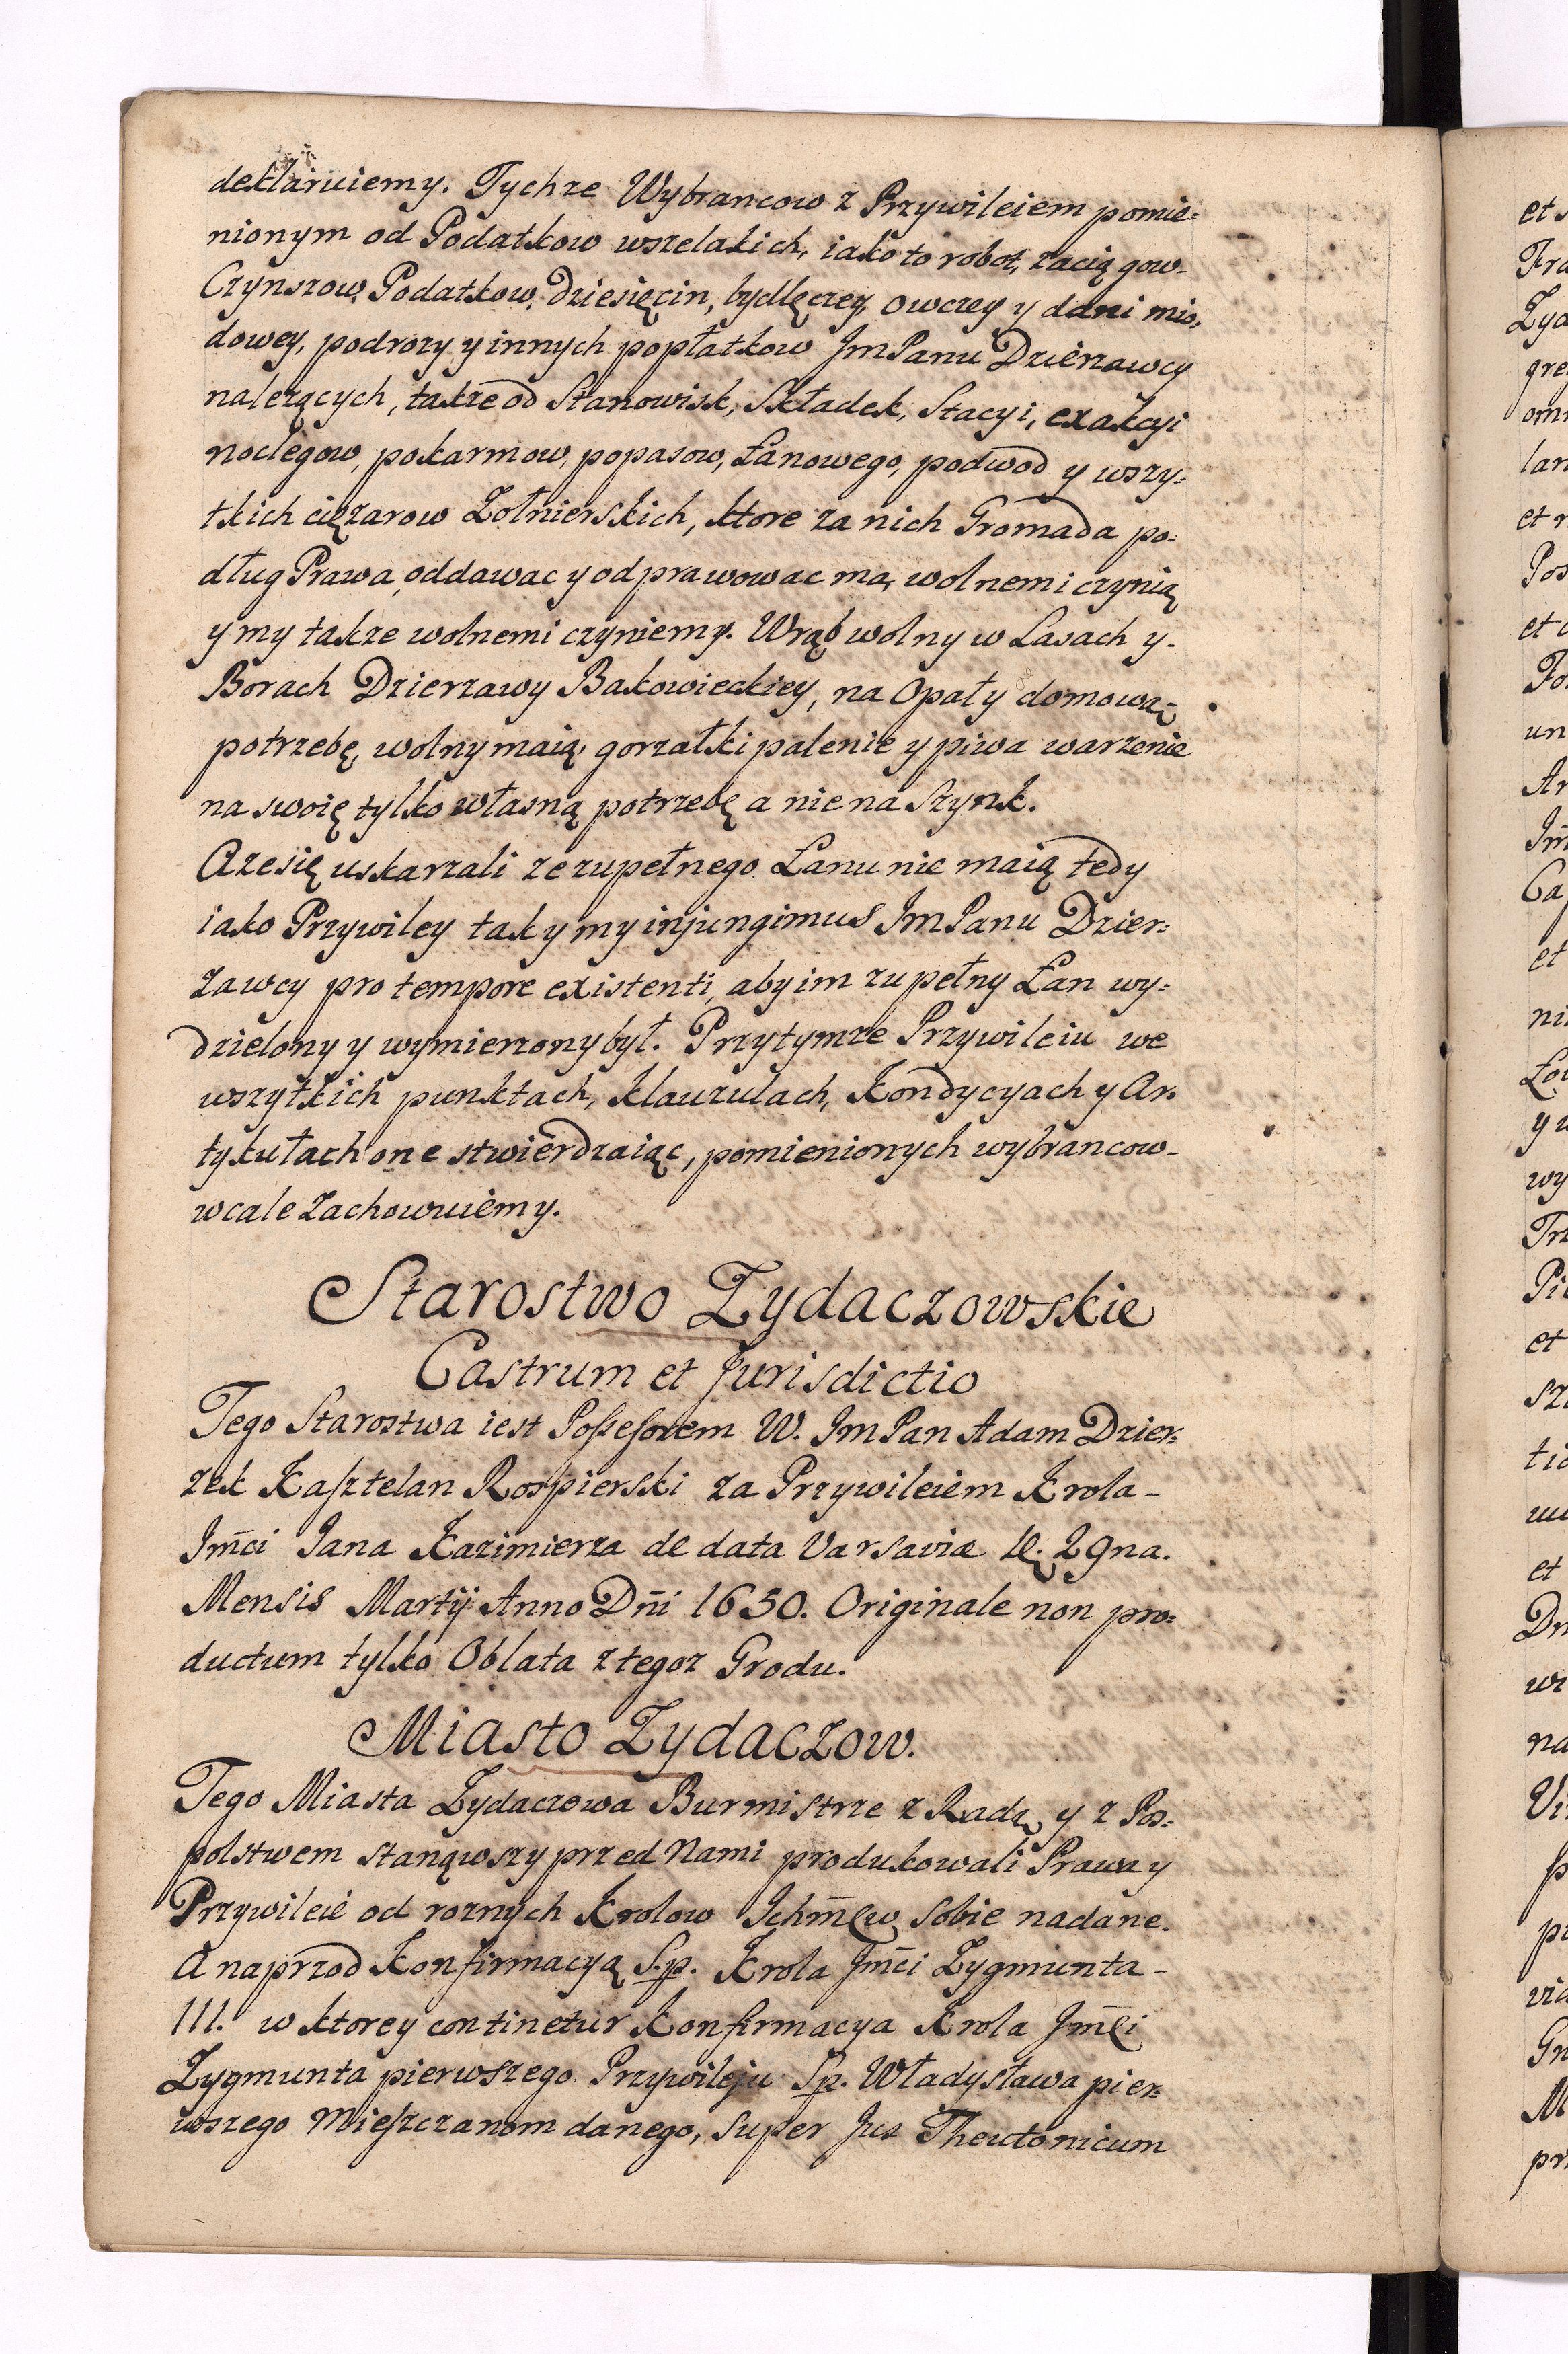 deklaruiemy. Tychze Wybrancow z Przywileiem pomie:
nionym od Podatkow wszelakich, iako to robot, zaciągow-
Czynszow, Podatkow, Dziesięcin, bydlęczey, owczey y dani mio:
dowey, podrozy y innych popłatkow Jm Panu Dzierzawcy
nalezących, takze od Stanowisk, Składek, Stacyi, exakcyi
noclegow, pokarmow, popasow, Łanowego, podwod y wszy:
tkich cięzarow Zołnierskich, ktore za nich Gromada po:
dług Prawa oddawac y odprawowac ma, wolnemi czynią
y my takze wolnemi czyniemy. Wrąb wolny w Lasach y-
Borach Dzierzawy Bakowieckiey, na Opał y domową
potrzebę, wolny maią, gorzałki palenie y piwa warzenie
na swoię tylko własną potrzebę a nie na Szynk.
A ze się uskarzali ze zupełnego Łanu nie maią tedy
iako Przywiley tak y my injungimus Jm Panu Dzier:
zawcy pro tempore existenti, aby im zupełny Łan wy:
dzielony y wymierzony był. Przy tymze Przywileiu we
wszytkich punktach, klauzulach, Kondycyach y Ar:
tykułach one stwierdzaiąc, pomienionych wybrancow-
wcale zachowuiemy.
Starostwo Zydaczowskie
Castrum et Jurisdictio
Tego Starostwa iest Possessorem W. Jm Pan Adam Dzier:
zek Kasztelan Rospierski za Przywileiem Krola-
Jm̄ci Jana Kazimierza de data Varsaviæ 29na.
Mensis Martij Anno Dn̄i 1650. Originale non pro:
ductum tylko Oblata z tegoz Grodu.
Miasto Zydaczow.
Tego Miasta Zydaczowa Burmistrze z Radą y z Pos:
polstwem stanąwszy przed Nami produkowali Prawa y
Przywileie od roznych Krolow Ichm̄ciow sobie nadane.
A naprzod Konfirmacyą S.p. Krola Jm̄ci Zygmunta-
III. w ktorey continetur Konfirmacya Krola Jm̄ci
Zygmunta pierwszego. Przywileju Sp. Władysława pier:
wszego Mieszczanom danego, super Jus Theutonicum